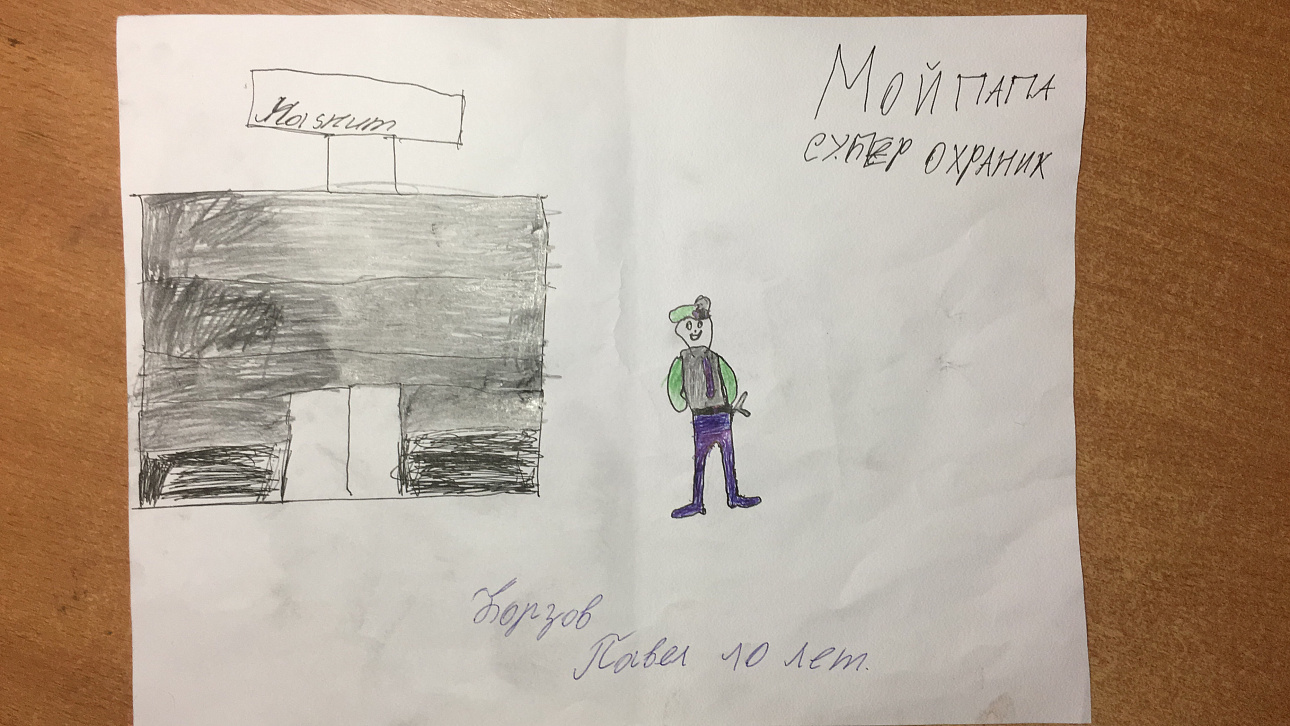 Магнит
МОЙ ПАПА
СУПЕР ОХРАНИК
Борзов
Павел 10 лет.